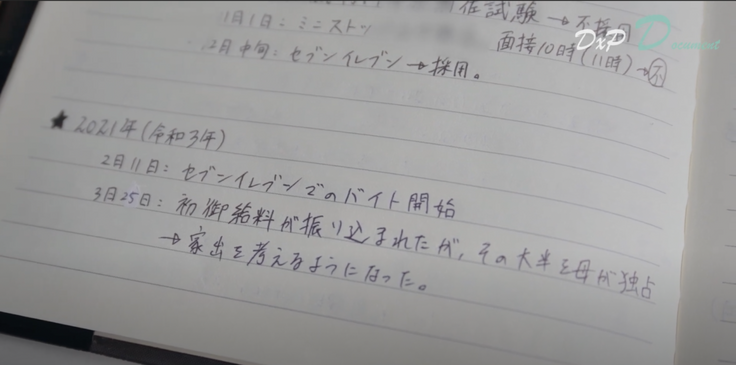 試験→不採用
1月1日：ミニストッ
面接10時(11時)→不
DxP Document
2月中旬：セブンイレブン→採用。
★2021年(令和3年)
2月11日：セブンイレブンでのバイト開始
3月25日：初御給料が振り込まれたが、その大半を母が独占
→家出を考えるようになった。